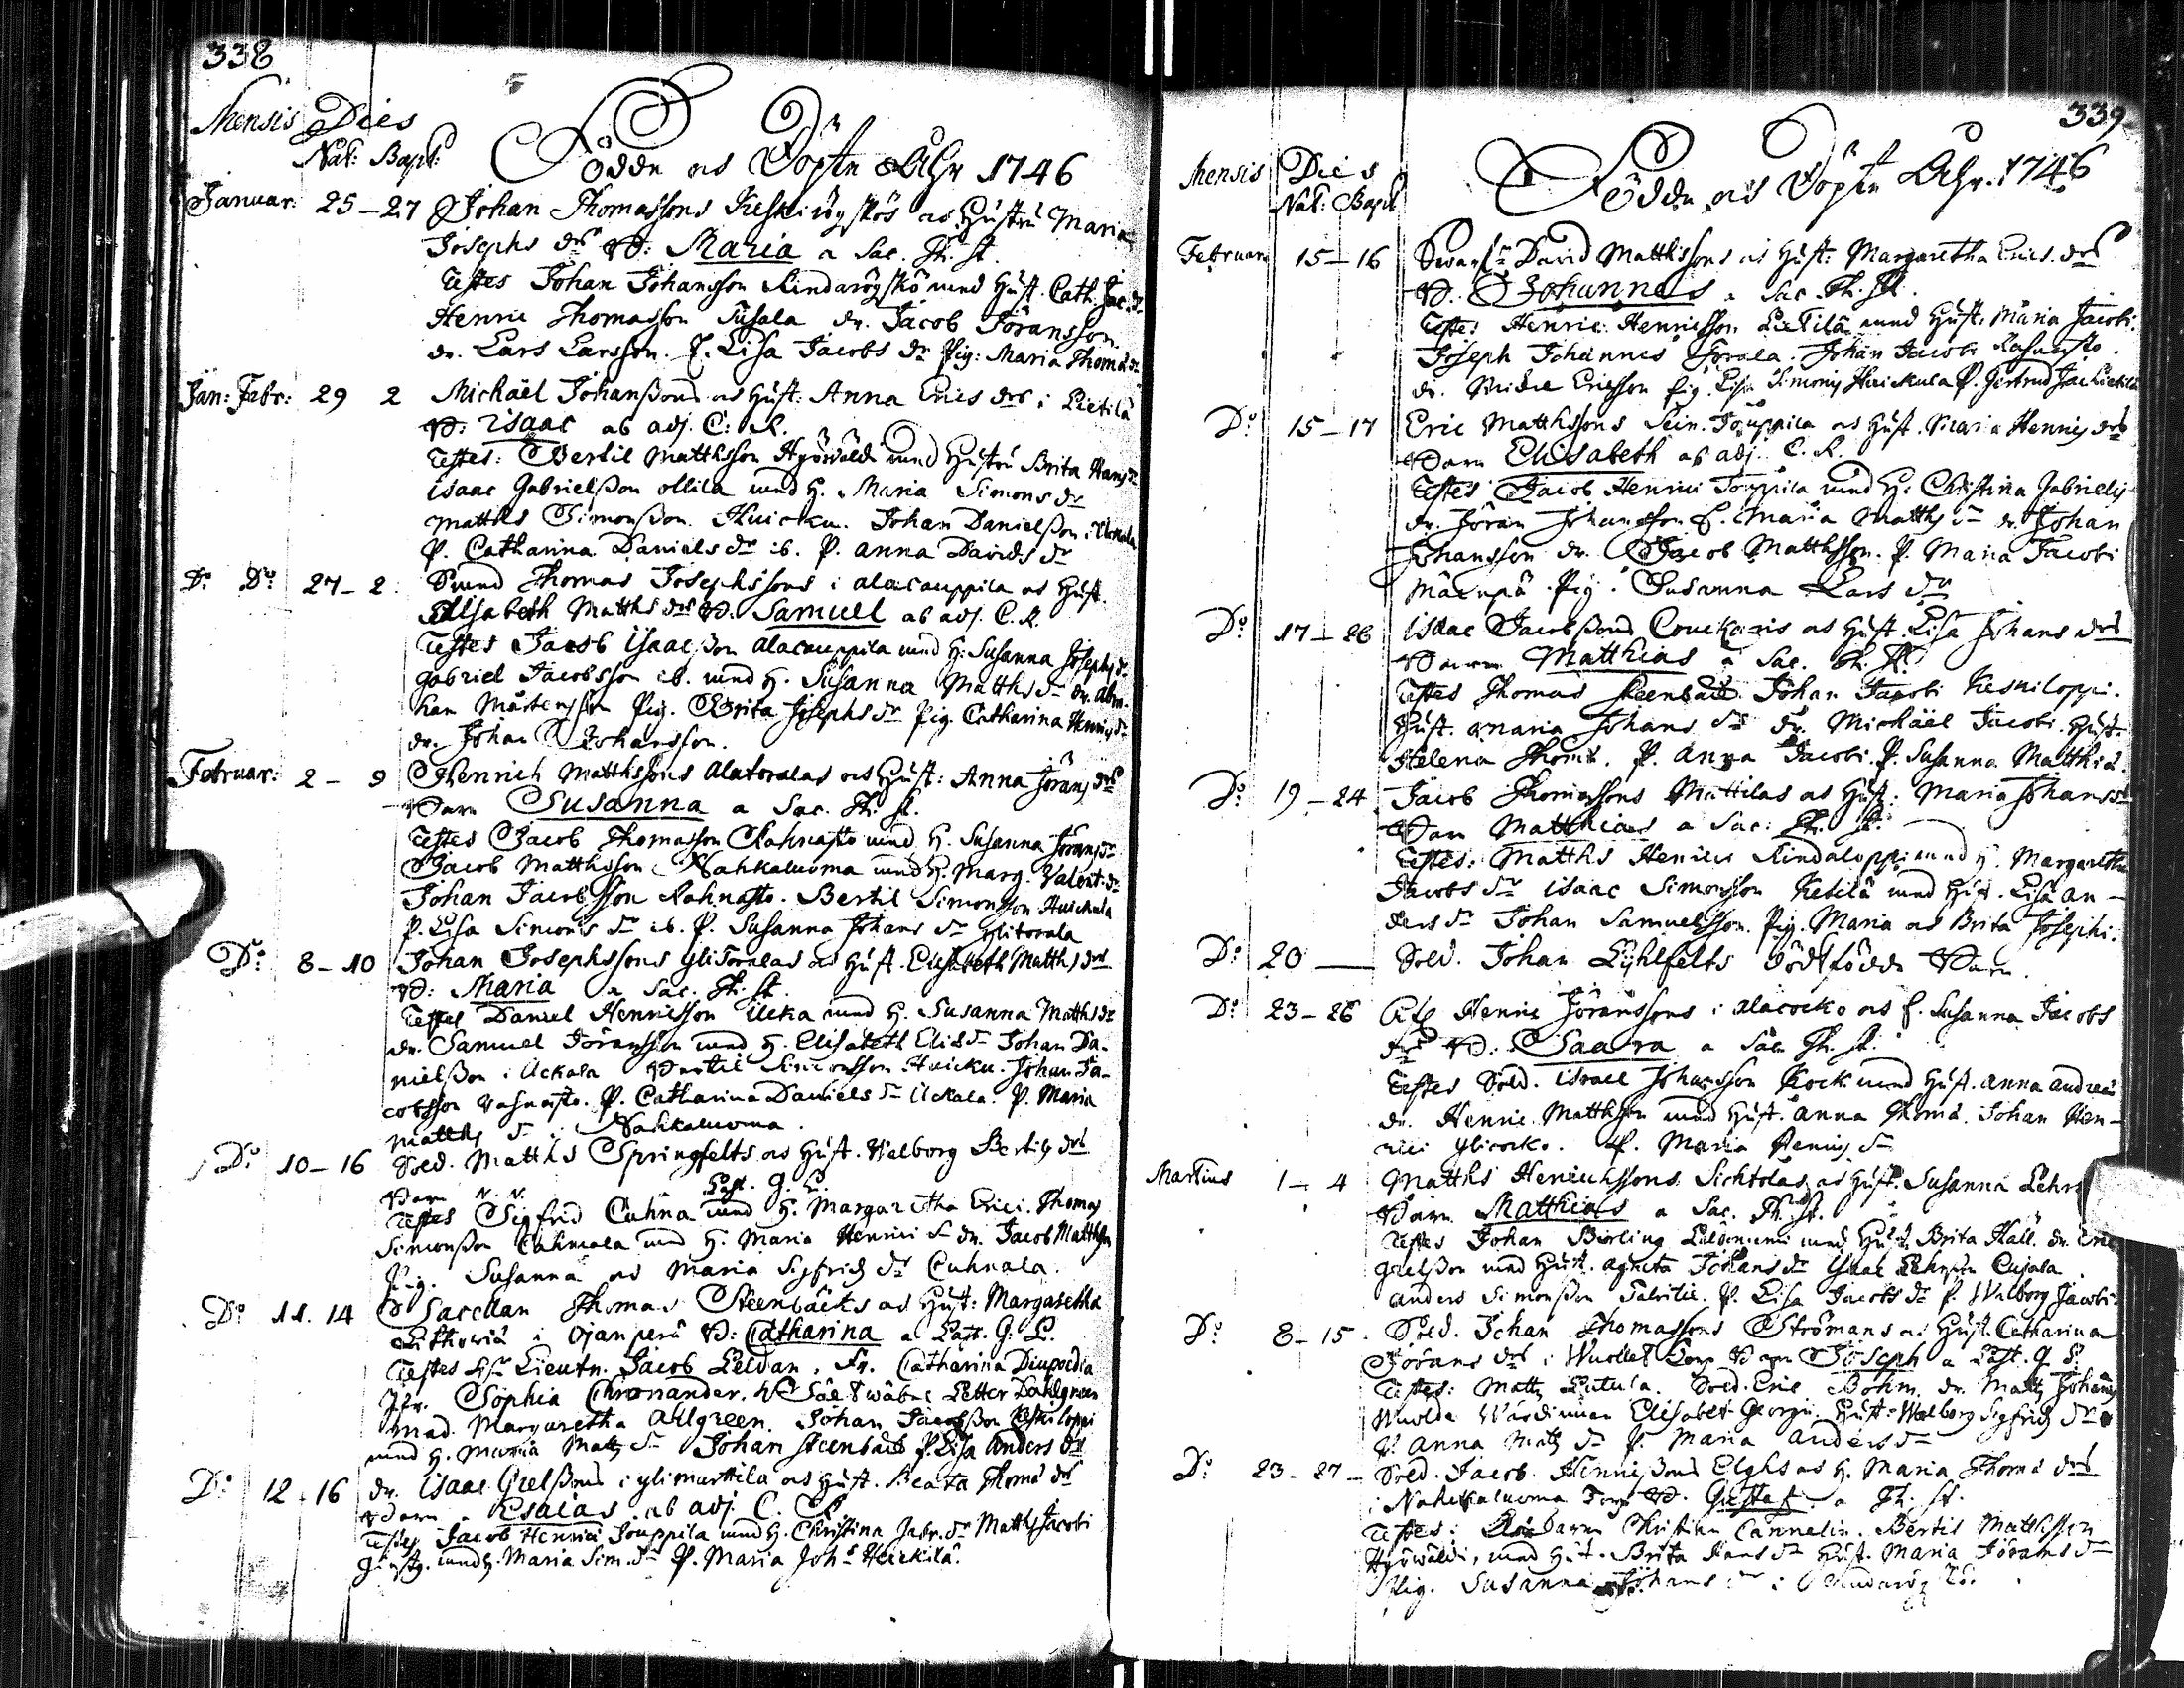 338
Mensis Dies
Nat: Bapt:
Födde och Döpte Åhr 1746
Januar: 25-27 Johan Thomassons och Hustru Maria
Josephs dr B: Maria a Sac. Th. St.
Testes Johan Johansson med Hust. Cath. Jac. dr
Henric Thomasson dr. Jacob Jöransson
dr. Lars Larsson. Lisa Jacobs dr Pig: Maria Thomæ dr
Jan: Febr: 29 2 Michäel Johanßons och Hust: Anna Erics dr i Lietilä
B: Isaac ab adj. C. R.
Testes: Bertil Matthsson Hyöwäldi med Hustru Brita Hans dr
Isaac Gabrielßon ollila med H. Maria Simons dr
Matths Simonßon Huicku. Johan Danielßon i Uckala
P. Catharina Daniels dr ib. P. Anna Davids dr
Do Do 27-2 Thomas Josephssons i alacauppila och Hust.
Elisabeth Matths dr B. Samuel ab adj. C. R.
Testes Jacob Isaacßon alacauppila med H: Susanna Josephs dr
Gabriel Jacobsson ib. med H. Susanna Matths dr dr. Abra-
ham Mårtensson Pig. Brita Josephs dr Pig. Catharina Henrics dr
dr. Johan Johansson.
Februar: 2-9 Henrich Matthssons Alatoralas och Hust: Anna Jörans dr
Barn Susanna a Sac. Th. St.
Testes Jacob Thomasson Rahnasto med H. Susanna Jörans dr
Jacob Matthsson Nahkaluoma med H. Marg. Valent. dr
Johan Jacobsson Rahnasto. Bertil Simonsson Huickula
P. Lisa Simons dr ib. P. Susanna Johans dr Ylitorala
Do: 8-10 Johan Josephssons Ylitoralas och Hust. Elisabeth Matths dr
B: Maria a Sac. Th. St.
Testes Daniel Henricsson Ucka med H. Susanna Matths dr
dr. Samuel Jöransson med H. Elisabeth Elis dr Johan Da-
nielßon i Uckala Bertil Simonsson Huicku. Johan Ja-
cobsson Rahnasto. P. Catharina Daniels dr Uckala. P. Maria
Matths dr i Nahkaluoma.
Do: 10-16 Sold. Matths Springfelts och Hust. Walborg Bertils dr
Barn N. N. Past. G. L.
Testes Sigfrid Cuhna med H. Margaretha Erici. Thomas
Simonßon Cuhnala med H. Maria Henrici dr dr. Jacob Matthsson
Pig. Susanna och Maria Sigfrids dr Cuhnala.
Do: 11. 14 Sacellan Thomas Steenbäcks och Hust: Margaretha
Lithovia i Ojanperä B: Catharina a Past. G. L.
Testes Lieutn. Jacob Leldan, Fr. Catharina
Jfr. Sophia Chronander. Petter Dahlgreen
Mad. Margaretha Ahlgreen. Johan Jacobsson Keskiloppi
med H. Maria Matts dr Johan Steenbäck P. Lisa Anders dr
Do: 12. 16 dr. Isaac Grelßons i ylimarttila och Hust. Beata Thomæ dr
Barn Esaias ab adj. C. R.
Testes Jacob Henrici Jouppila med H. Christina Gabr. dr Matths Jacobi
med H. Maria Sim. dr P. Maria Joh: Heickilä.
339
Mensis Dies
Nat: Bapt
Födde och Döpte Åhr. 1746
Februari 15-16 David Matthssons och Hust: Margaretha Erics dr
B. Johannes a Sac. Th. St.
Testes: Henric Henricsson Lietilä med Hust: Maria Jacobi.
Joseph Johannes Torala. Johan Jacobi Rahnasto.
dr. Michel Ericsson Pig. Lisa Simonis Huickula P. Gertrud Jac Lietilä
Do: 15-17 Eric Matthssons Jouppila och Hust. Maria Henrics dr
Barn Elisabeth ab adj. C. R.
Testes Jacob Henrici Jouppila med H: Christina Gabrielis
dr. Jöran Johansson Maria Matths dr dr. Johan
Johansson dr. Jacob Matthsson. P. Maria Jacobi
Mäenpä Pig. Susanna Lars dr
Do: 17-26 Isaac Jacobßons Couckaris och Hust. Lisa Johans dr
Barn Matthias a Sac. Th. St.
Testes Thomas Steenbäck Johan Jacobi Keskiloppi.
Hust. Maria Johans dr dr. Michäel Jacobi Hust.
Helena Thomæ. P. Anna Jacobi. P. Susanna Matthiæ.
Do: 19-24 Jacob Thomassons Mattilas och Hust: Maria Johans dr
Barn Matthias a Sac: Th. St.
Testes: Matths Henrici Rindaloppi med H. Margaretha
Jacobs dr Isaac Simonsson Ketilä med Hust. Lisa An-
ders dr Johan Samuelsson. Pig. Maria och Brita Josephi.
Do: 20 — Sold. Johan Lyhlfelts dödfödde Barn.
Do: 23-26 Henric Jöranssons i alacocko och Susanna Jacobs
dr B: Saara a Sac Th. St.
Testes Sold. Israel Johansson Kock med Hust. Anna Andreæ
dr. Henric Matthsson med Hust. Anna Thomæ. Johan Hen-
rici Ylicocko. P. Maria Henrics dr
Martius 1-4 Matths Henrichssons Sichtolas och Hust. Susanna Lehrs
Barn Matthias a Sac. Th. St.
Testes Johan Burling med Hust. Brita Hall. dr. Eric
Grelßon med Hust. Agneta Johans dr Isaac Cujala
Anders Simonßon Talvitie. P. Lisa Jacobs dr P. Walborg Jacobi.
Do: 8-15. Sold. Johan Thomassons Strömans och Hust. Catharina
Jörans dr i Wuollet Torp Barn Joseph a Past. G. L.
Testes: Matts Lutula. Sold. Eric Bohm. dr. Matts Johans
Elisabet Georgii Hust: Walborg Sigfrids dr
P. Anna Matts dr P. Maria Anders dr
Do: 23-27- Sold. Jacob Henrißons Elghs och H. Maria Thomæ dr
i Nahckaluoma Torp B. Gustaf a Th. St.
Testes: Christian Cannelin. Bertil Matthsson
Hyöwäldi, med Hust. Brita Hans dr Hust. Maria Jörans dr
Pig. Susanna Johans dr i